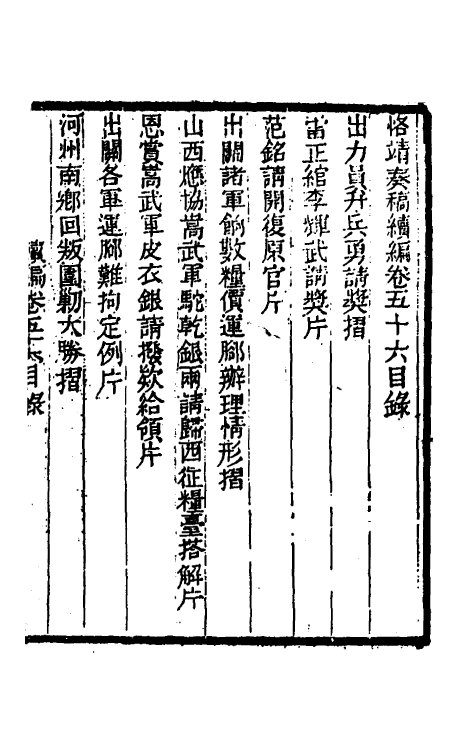 恪靖奏稿續編卷五十六目錄
出力員弁兵勇請獎摺
雷正綰李輝武請獎片
范銘請開復原官片
出關諸軍餉數糧價運腳辦理情形摺
山西應協嵩武軍駝乾銀兩請歸西征糧臺搭解片
恩賞嵩武軍皮衣銀請撥欵給領片
出關各軍運腳難拘定例片
河州南鄉回叛圍勦大勝摺
續編卷五十六目錄